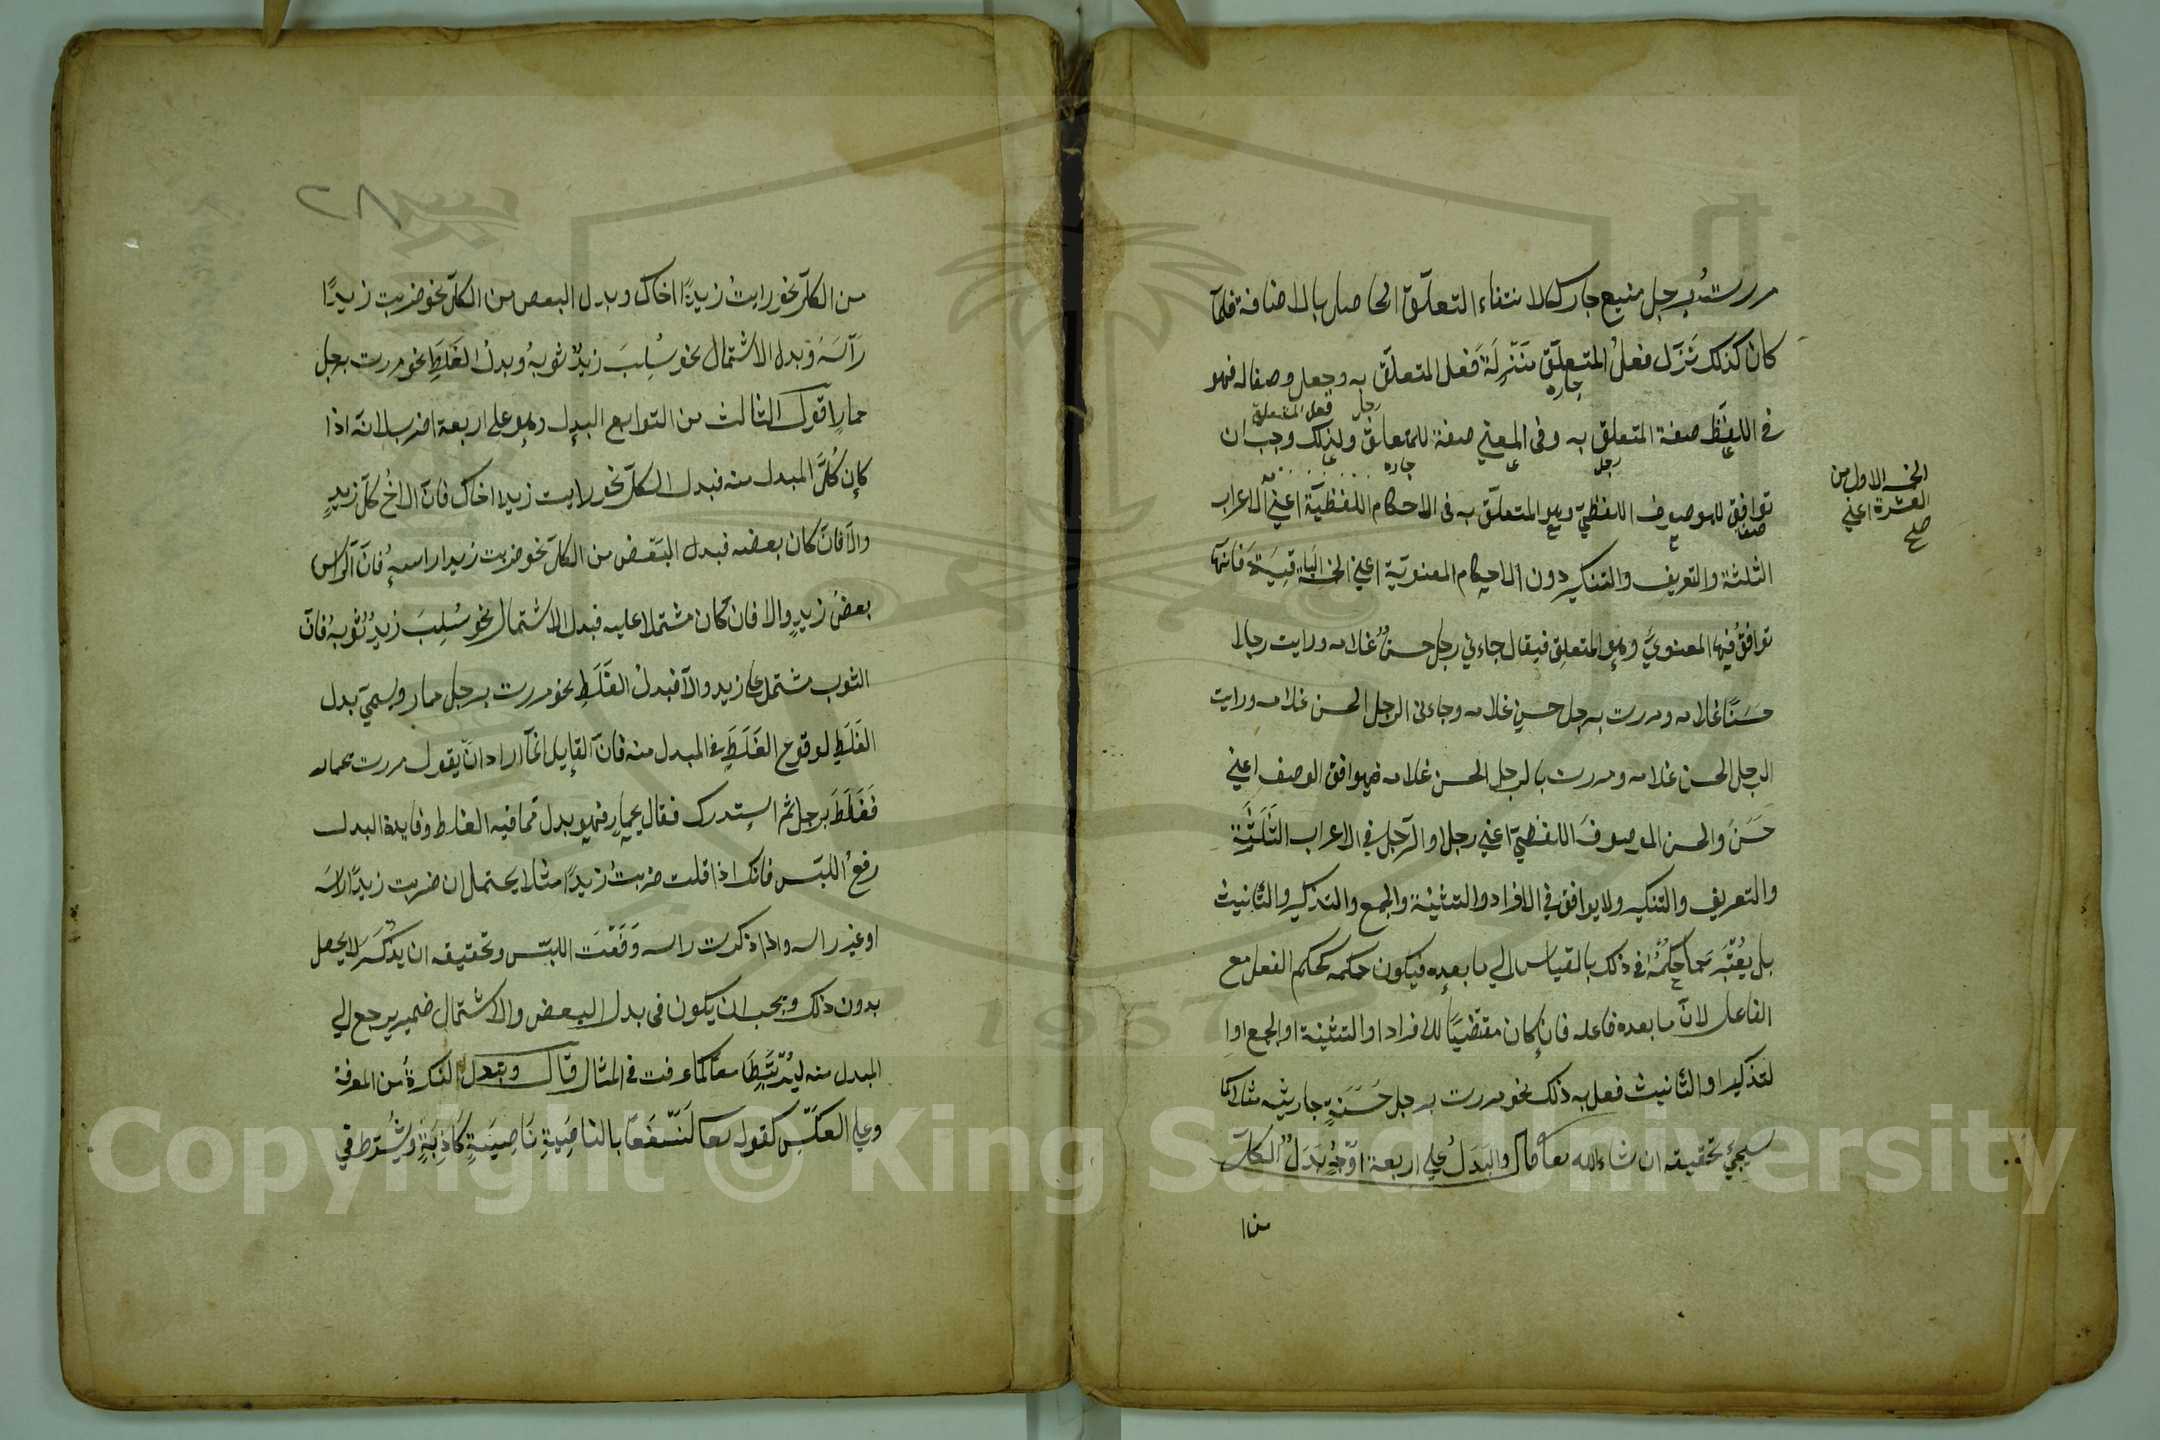 مررت برجل منيع جارك لانتفاء التعلق الحاصل بالاضافة فلما
كان كذلك نزل فعل المتعلق منزلة فعل المتعلق به وجعل وصفا له فهو
جاره
رجل فعل المتعلق
في اللفظ صفة المتعلق به وفى المعنى صفة للمتعلق ولذلك وجب ان
رجل جاره
توافق للموصوف اللفظي وهو المتعلق به فى الاحكام اللفظية اعنى الاعراب
الخمسة الاول من
العشرة اعني
صح
الثلثة والتعريف والتنكير دون الاحكام المعنوية اعنى الخمسة الباقية فانها
توافق فيها المعنوي وهو المتعلق فيقال جاءني رجل حسن غلامه ورايت رجلا
حسنًا غلامه ومررت برجل حسن غلامه وجاءنى الرجل الحسن غلامه ورايت
الرجل الحسن غلامه ومررت بالرجل الحسن غلامه فيوافق الوصف اعني
حسن والحسن الموصوف اللفظي اعني رجلا والرجل في الاعراب الثلثة
والتعريف والتنكير ولا يوافق في الافراد والتثنية والجمع والتذكير والتأنيث
بل يعتبر حكمه في ذلك بالقياس الي ما بعده فيكون حكمه كحكم الفعل مع
الفاعل لان ما بعده فاعله فان كان مقتضيًا للافراد او التثنية او الجمع او ا
لتذكير او التأنيث فعل به ذلك نحو مررت برجل حسنة جاريته مثلا كما
سيجئ تحقيقه ان شاء الله تعا قال والبدل علي اربعة اوجه بدل الكل
من ا
٢٨
من الكل نحو رايت زيدًا اخاك وبدل البعض من الكل نحو ضربت زيدًا
رأسه وبدل الاشتمال نحو سُلِبَ زيد ثوبه وبدل الغلط نحو مررت برجل
حمار اقول الثالث من التوابع البدل وهو على اربعة اضرب لانه اذا
كان كل المبدل منه فبدل الكل نحو رايت زيدا اخاك فان الاخ كل زيد
والا فان كان بعضه فبدل البعض من الكل نحو ضربت زيدا راسه فان الراس
بعض زيد والا فان كان مشتملا عليه فبدل الاشتمال نحو سُلِبَ زيد ثوبه فان
الثوب مشتمل علي زيد والا فبدل الغلط نحو مررت برجل حمار ويسمي بدل
الغلط لوقوع الغلط في المبدل منه فان القايل انما اراد ان يقول مررت بحمار
فغلط برجل ثم استدرك فقال بحمار فهو بدل مما فيه الغلط وفايدة البدل
رفع اللبس فانك اذا قلت ضربت زيدًا مثلا يحتمل ان ضربت زيدًا راسه
او غير راسه واذا ذكرت راسه رفعت اللبس وتحقيقه ان يذكر لا يحصل
بدون ذلك ويجب ان يكون فى بدل البعض والاشتمال ضمير يرجع الي
المبدل منه ليرتبطا معا كما عرفت في المثال قال وتبدل النكرة من المعرفة
وعلي العكس كقوله تعا لَنَسْفَعًا بالناصية ناصية كاذبة ويشترط في
Copyright © King Saud University
1957